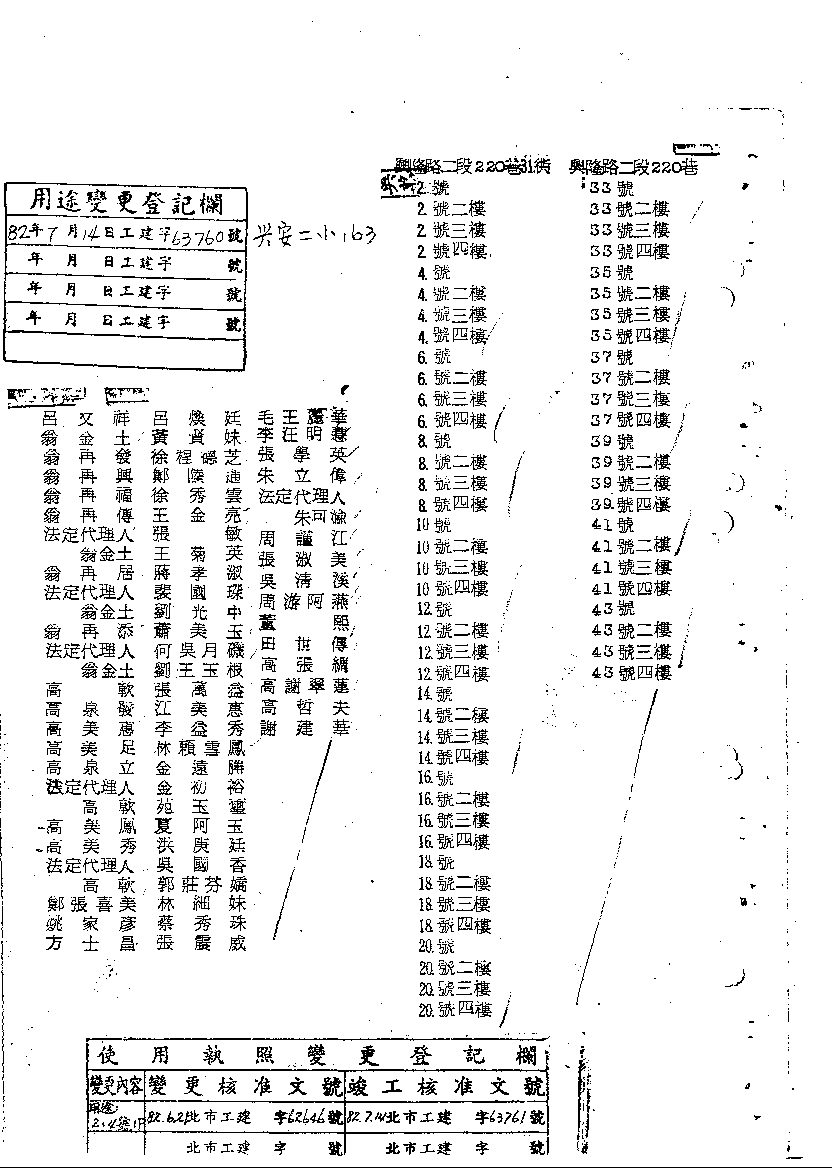 用途變更登記欄
82年7月14日工建字63760號 兴安二小163
年 月 日工建字 號
年 月 日工建字 號
年 月 日工建字 號
呂文祥
翁金土
翁再發
翁再興
翁再福
翁再傳
法定代理人
翁金土
翁再居
法定代理人
翁金土
翁再添
法定代理人
翁金土
高 軟
高泉發
高美惠
高美足
高泉立
法定代理人
高軟
高美鳳
高美秀
法定代理人
高軟
鄭張喜美
姚家彥
方士昌
呂煥廷
黃貴妹
徐程德芝
鄭 迪
徐秀雲
王金亮
張 敏
王菊英
蔣孝淑
裴國琛
劉光中
蕭美玉
何吳月磯
劉王玉根
張萬益
江美惠
李益秀
林賴雪鳳
金遠勝
金初裕
苑玉
夏阿玉
洪庚廷
吳國香
郭莊芬嬌
林細妹
蔡秀珠
張震威
毛王 華
李汪明慧
張學英
朱立偉
法定代理人
朱可渝
周謹江
張淑美
吳清溪
周游阿燕
董 熙
田世傳
高張綢
高謝翠蓮
高哲夫
謝建華
興隆路二段220巷31衖
2.號
2.號二樓
2.號三樓
2.號四樓
4.號
4.號二樓
4.號三樓
4.號四樓
6.號
6.號二樓
6.號三樓
6.號四樓
8.號
8.號二樓
8.號三樓
8.號四樓
10.號
10.號二樓
10.號三樓
10.號四樓
12.號
12.號二樓
12.號三樓
12.號四樓
14.號
14.號二樓
14.號三樓
14.號四樓
16.號
16.號二樓
16.號三樓
16.號四樓
18.號
18.號二樓
18.號三樓
18.號四樓
20.號
20.號二樓
20.號三樓
20.號四樓
興隆路二段220巷
33號
33號二樓
33號三樓
33號四樓
35號
35號二樓
35號三樓
35號四樓
37號
37號二樓
37號三樓
37號四樓
39號
39號二樓
39號三樓
39號四樓
41號
41號二樓
41號三樓
41號四樓
43號
43號二樓
43號三樓
43號四樓
使用執照變更登記欄
變更內容 變更核准文號 竣工核准文號
2.4號1F 82.6.21北市工建 字62646號 82.7.14北市工建 字63761號
北市工建 字 號 北市工建 字 號